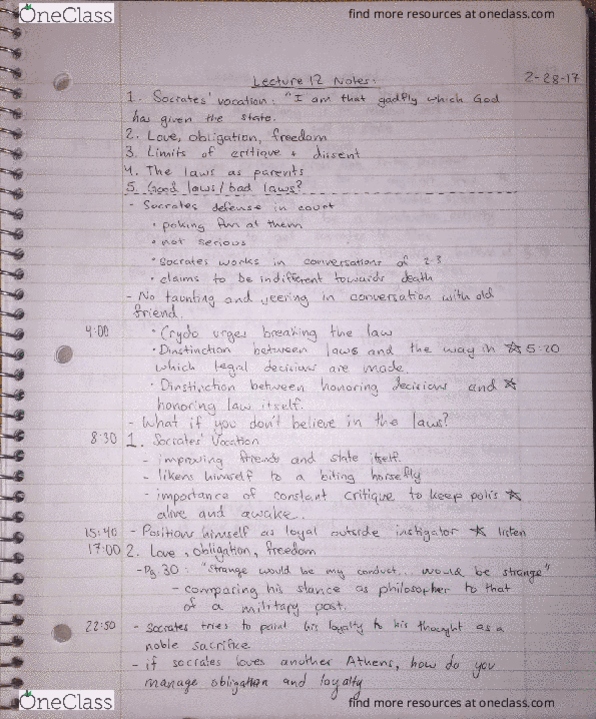 OneClass
find more resources at oneclass.com
Lecture 12 Notes:
2-28-17
1. Socrates' vocation: "I am that gadfly which God
has given the state.
2. Love, obligation, freedom
3. Limits of critique + dissent
4. The laws as parents
5. Good laws/bad laws?
- Socrates defense in court
• poking fun at them
• not serious
• Socrates works in conversations of 2-3
• claims to be indifferent towards death
- No taunting and jeering in conversation with old
friend.
4:00 • Crydo urges breaking the law
• Dinstinction between laws and the way in ☆ 5:20
which legal decisions are made.
• Dinstinction between honoring decisions and ☆
honoring law itself.
- What if you don't believe in the laws?
8:30 1. Socrates' Vocation
- improving friends and state itself.
- likens himself to a biting horsefly
- importance of constant critique to keep polis ☆
alive and awake.
15:40 - Positions himself as loyal outside instigator ☆ listen
17:00 2. Love, obligation, freedom
- Pg. 30: "Strange would be my conduct... would be strange"
- comparing his stance as philosopher to that
of a military post.
22:50 - Socrates tries to paint his loyalty to his thought as a
noble sacrifice
- if socrates loves another Athens, how do you
manage obligation and loyalty
OneClass
find more resources at oneclass.com